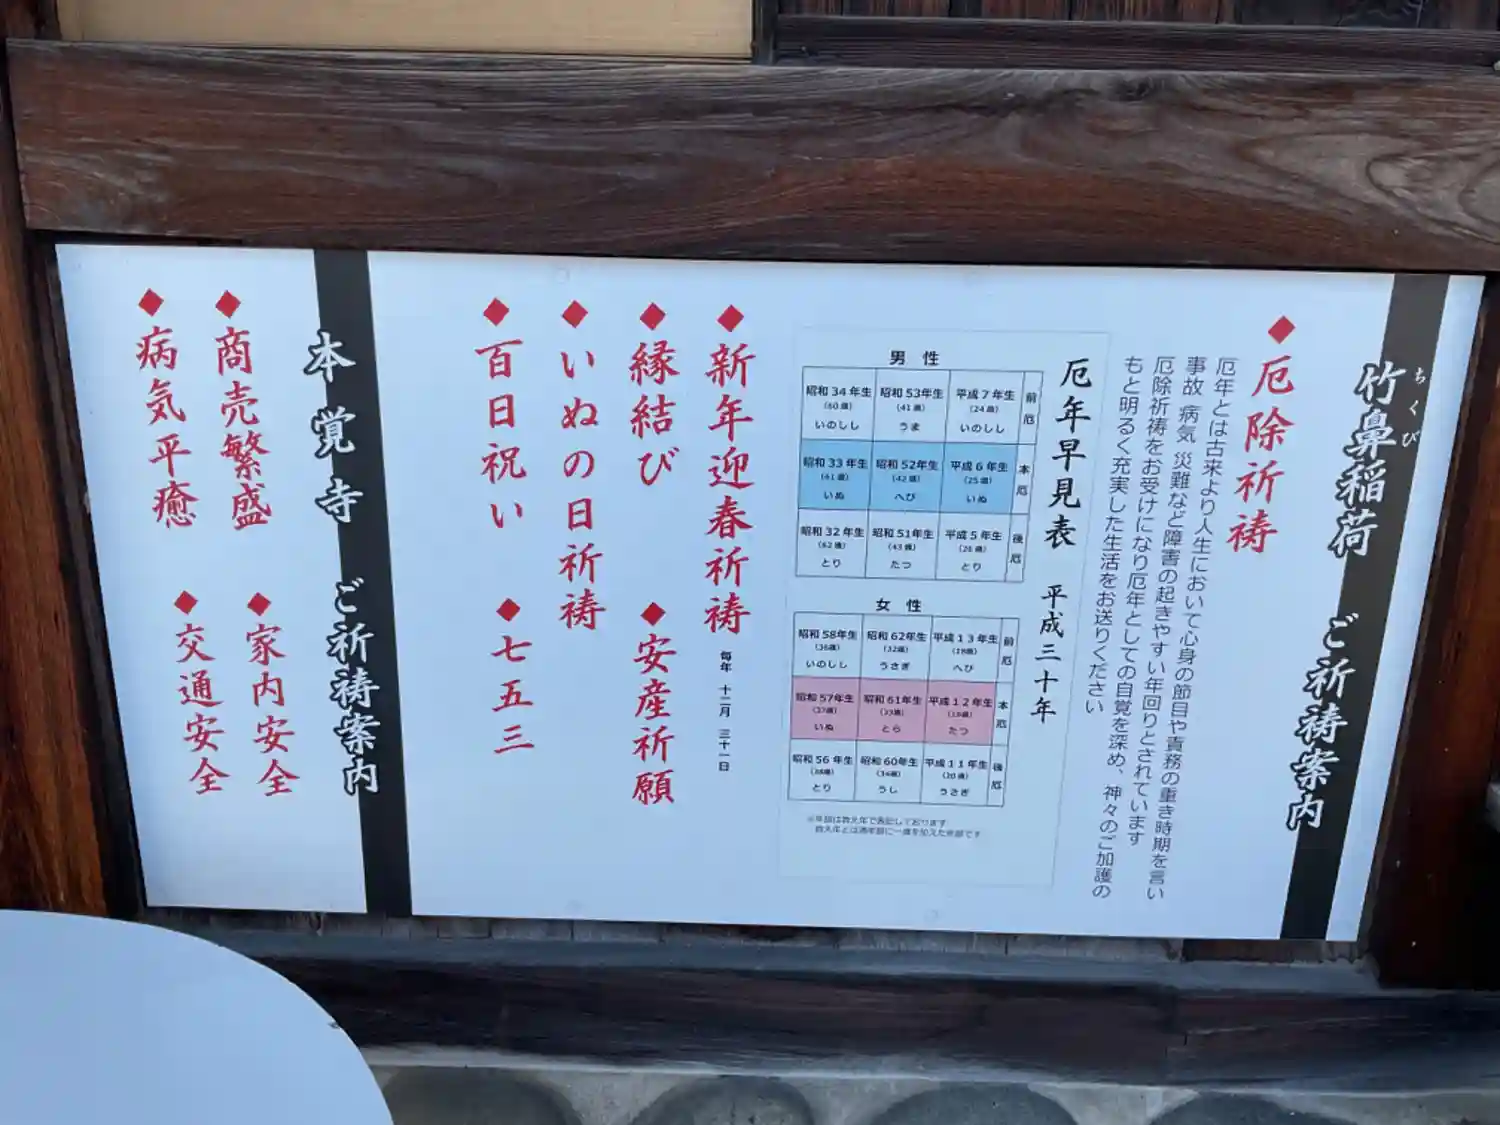 竹鼻稲荷 ご祈祷案内
ちくび
◆厄除祈祷
厄年とは古来より人生において心身の節目や責務の重き時期を言い
事故 病気 災難など障害の起きやすい年回りとされています
厄除祈祷をお受けになり厄年としての自覚を深め、神々のご加護の
もと明るく充実した生活をお送りください
厄年早見表 平成三十年
男性
昭和34年生 昭和53年生 平成7年生 前厄
(60歳) (41歳) (24歳)
いのしし うま いのしし
昭和33年生 昭和52年生 平成6年生 本厄
(61歳) (42歳) (25歳)
いぬ へび いぬ
昭和32年生 昭和51年生 平成5年生 後厄
(62歳) (43歳) (26歳)
とり たつ とり
女性
昭和58年生 昭和62年生 平成13年生 前厄
(36歳) (32歳) (18歳)
いのしし うさぎ へび
昭和57年生 昭和61年生 平成12年生 本厄
(37歳) (33歳) (19歳)
いぬ とら たつ
昭和56年生 昭和60年生 平成11年生 後厄
(38歳) (34歳) (20歳)
とり うし うさぎ
※年齢は数え年で表記しております
数え年とは満年齢に一歳を加えた年齢です
◆新年迎春祈祷 毎年 十二月 三十一日
◆縁結び ◆安産祈願
◆いぬの日祈祷
◆百日祝い ◆七五三
本覚寺 ご祈祷案内
◆商売繁盛 ◆家内安全
◆病気平癒 ◆交通安全